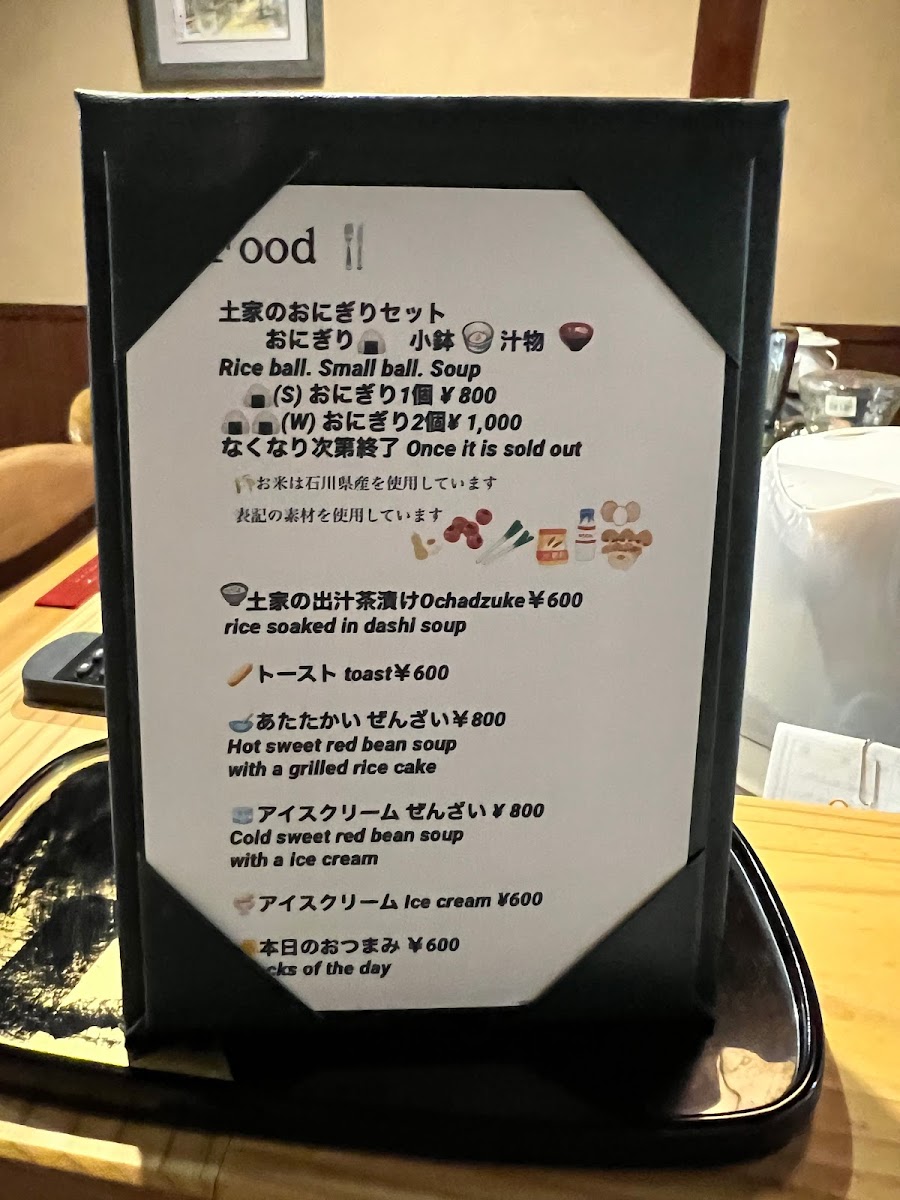 Food
土家のおにぎりセット
おにぎり 小鉢 汁物
Rice ball. Small ball. Soup
(S) おにぎり1個 ¥ 800
(W) おにぎり2個¥ 1,000
なくなり次第終了 Once it is sold out
お米は石川県産を使用しています
表記の素材を使用しています
土家の出汁茶漬けOchadzuke¥600
rice soaked in dashi soup
トースト toast¥600
あたたかい ぜんざい¥800
Hot sweet red bean soup
with a grilled rice cake
アイスクリーム ぜんざい ¥ 800
Cold sweet red bean soup
with a Ice cream
アイスクリーム Ice cream ¥600
本日のおつまみ ¥600
cks of the day